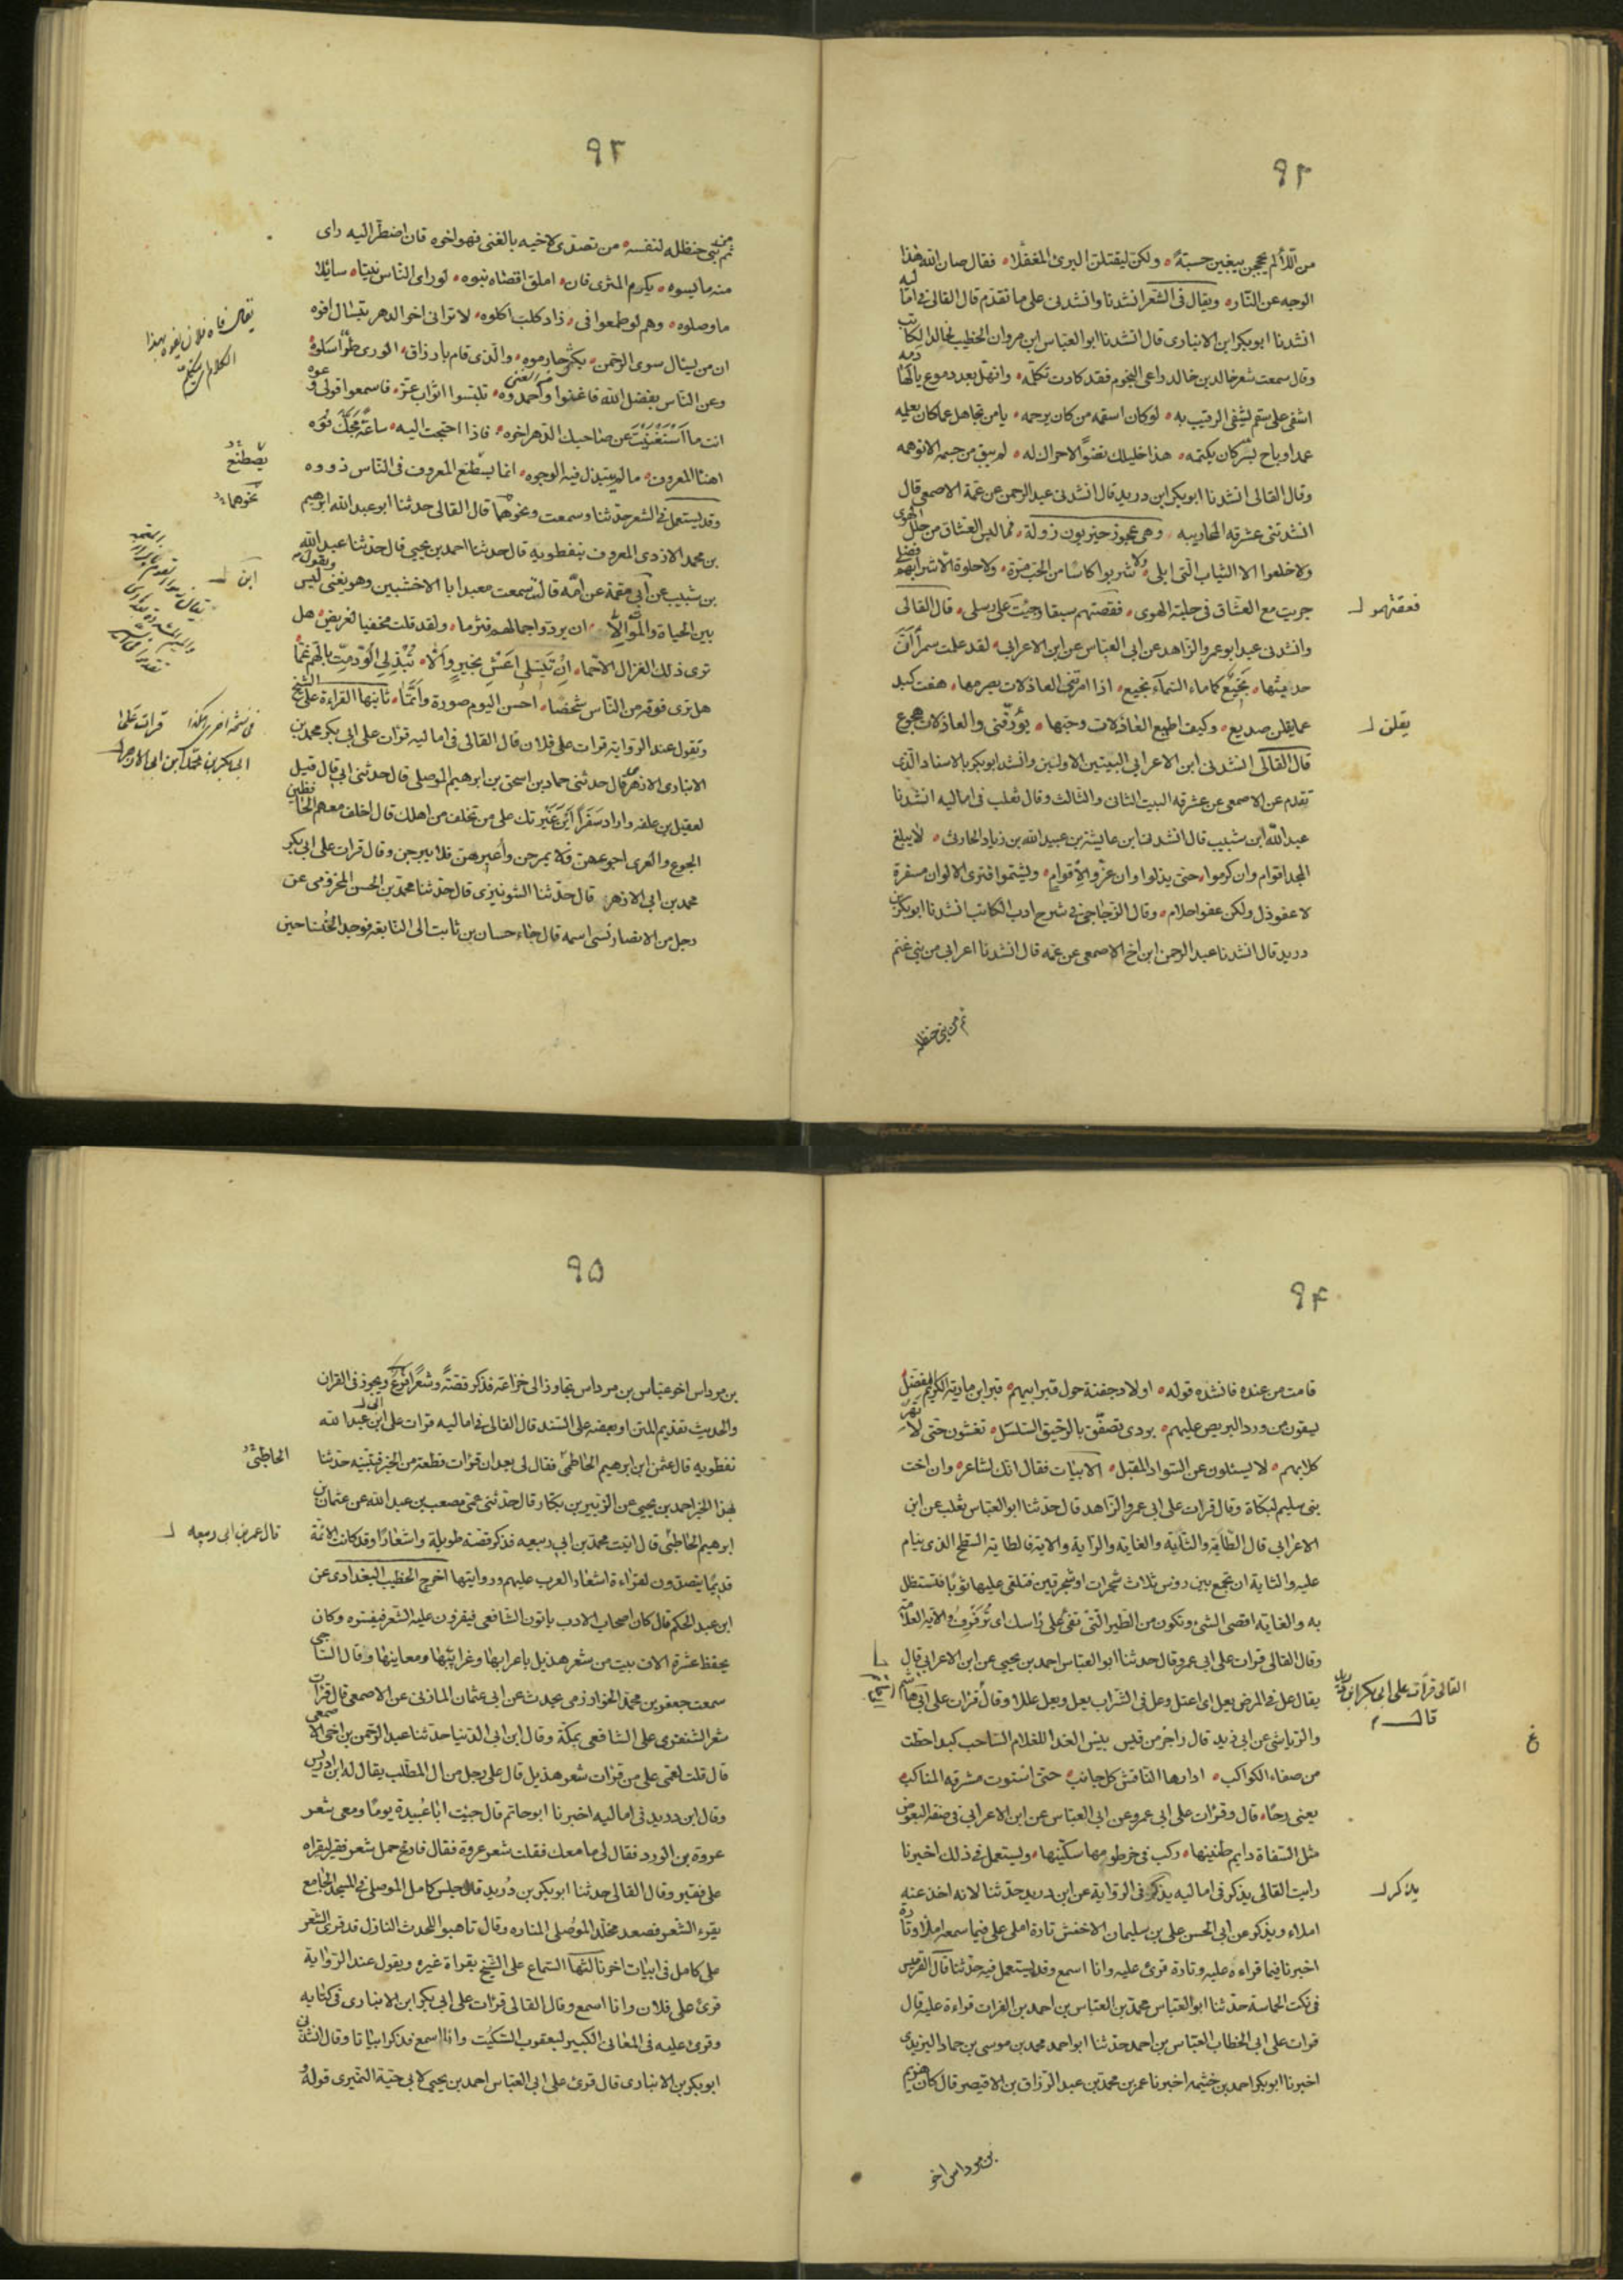 ٩٢
من اللائي لم يحججن يبغين حسبة ولكن ليقتلن البرئ المغفلا فقال صان الله هذا
الوجه عن النار ويقال في الشعر انشدنا وانشدني على ما تقدم قال القالي في اماليه
انشدنا ابوبكر ابن الانباري قال انشدنا ابو العباس ابن مروان الخطيب لخالد الكاتب
وقال سمعت شعر خالد بن خالد راعى النجوم فقد كادت تكلمه وانهل بعد دموع يالها دمه
اشفى على سقم يشفى الرقيب به لو كان اسقمه من كان يرحمه يا من تجاهل عما كان يعلمه
عمدا وباح بسر كان يكتمه هذا خليلك نضوا لاحراك له لم يبق من جسمه الا توهمه
وقال القالي انشدنا ابوبكر ابن دريد قال انشدني عبد الرحمن عن عمه الاصمعي قال
انشدتني عشرقة المحاربيه وهي عجوز حيزبون زولة فما لبس العشاق من حلل الهوى
ولا خلعوا الا الثياب التي ابلى ولا شربوا كاسا من الحب مرة ولا حلوة الا شرابهم فضلى
جريت مع العشاق في حلبة الهوى ففقتهم سبقا وجئت على رسلى قال القالي
فعقتهمو
وانشدني عبد ابو عمر والزاهد عن ابي العباس عن ابن الاعرابي لقد علمت سمراء ان
حديثها نجيع كما ماء السماء نجيع اذا امرتني العاذلات بصرمها هفت كبد
عما يقلن صديع وكيف اطيع العاذلات وحبها يؤرقني والعاذلات هجوع
يقلن
قال القالي انشدني ابن الاعرابي البيتين الاولين وانشد ابوبكر بالاسناد الذي
تقدم عن الاصمعي عن عشرقة البيت الثاني والثالث وقال ثعلب في اماليه انشدنا
عبد الله ابن شبيب قال انشدنا ابن عايشة بن عبيد الله بن زياد الحارثي لا يبلغ
المجد اقوام وان كرموا حتى يذلوا وان عزوا لاقوام ويشتموا فترى الالوان مسفرة
لا عفو ذل ولكن عفو احلام وقال الزجاجي في شرح ادب الكاتب انشدنا ابوبكر بن
دريد قال انشدنا عبد الرحمن ابن اخ الاصمعي عن عمه قال انشدنا اعرابي من بني غنم
ثم من بني حنظله
٩٣
ثم من بني حنظله لنفسه من تصدى لاخيه بالغنى فهو اخوه فان اضطر اليه راى
منه ما يسوه يكرم المثرى فان املق اقصاه بنوه لو راى الناس نبيا سائلا
ما وصلوه وهم لو طمعوا في زاد كلب اكلوه لا تراني اخر الدهر بتسال افوه
ان من يسال سوى الرحمن يكثر حارموه والذي قام بارزاق الورى طرا سلوه
وعن الناس بفضل الله فاغنوا واحمدوه تلبسوا اثواب عز فاسمعوا قولى وعوه
انت ما استغنيت عن صاحبك الدهر اخوه فاذا احتجت اليه ساعة مجك فوه
اهنا المعروف ما لم يبتذل فيه الوجوه انما يصطنع المعروف في الناس ذووه
يصطنع
وقد يستعمل في الشعر حدثنا وسمعت ونحوهما قال القالي حدثنا ابو عبد الله ابرهيم
نحوهما
بن محمد الازدي المعروف بنفطويه قال حدثنا احمد بن يحيى قال حدثنا عبد الله
بن شبيب عن ابي مقمة عن امه قالت سمعت معبدا بالاخشبين وهو يغنى ليس
ابن
بين الحياة والموت الا ان يردوا جمالهم فتزما ولقد قلت مخفيا لغريض هل
ترى ذلك الغزال الاحما
هل ترى فوقه من الناس شخصا احسن اليوم صورة واتما ثانيها القراءة على الشيخ
ويقول عند الرواية قرات على فلان قال القالي في اماليه قرات على ابي بكر محمد بن
الانباري الازهر قال حدثني حماد بن اسحق بن ابرهيم الموصلي قال حدثني ابي قال قيل
لعقيل بن علفه واراد سفرا اين غيرتك على من تخلف من اهلك قال اخلف معهم الحافظين
الجوع والعرى اجوعهن فلا يمرحن واعريهن فلا يبرحن وقال قرات على ابي بكر
محمد بن ابي الازهر قال حدثنا الشونيزى قال حدثنا محمد بن الحسن المخزومى عن
رجل من الانصار نسى اسمه قال جاء حسان بن ثابت الى النابغه فوجد الخنسا حين
٩٤
قامت من عنده فانشده قوله اولاد جفنة حول قبر ابيهم قبر ابن ماوية الكريم المفضل
يسقون من ورد البريص عليهم بردى تصفق بالرحيق السلسل تغشون حتى لا تهر
كلابهم لا يسئلون عن السواد المقبل الابيات فقال انك لشاعر وان اخت
بني سليم لبكاة وقال قرات على ابي عمرو الزاهد قال حدثنا ابو العباس ثعلب عن ابن
الاعرابي قال الطاية والثاية والغاية والراية والاية فالطاية السطح الذي ينام
عليه والثاية ان تجمع بين روس ثلاث شجرات او شجرتين فتلقى عليها ثوبا فتستظل
به والغايه اقصى الشئ وتكون من الطير التي تغيى على راسك اى ترفرف والآيه العلامة
وقال القالي قرات على ابي عمر وقال حدثنا ابو العباس احمد بن يحيى عن ابن الاعرابي قال
يقال عل في المرض يعل اى اعتل وعل في الشراب يعل ويعل عللا وقال قرات على ابي هاشم
القالي قرات على ابي بكر ابن دريد
قال
والرياشي عن ابي زيد قال راجز من قيس بئس الغذا للغلام الشاحب كبدا حطت
من صفاء الكواكب ادارها النقاش كل جانب حتى استوت مشرقه المناكب
يعنى رحا قال وقرات على ابي عمر وعن ابي العباس عن ابن الاعرابي في صفة البعوض
مثل السفاة دايم طنينها ركب في خرطومها سكينها ويستعمل في ذلك اخبرنا
رايت القالي يذكر في اماليه يذكر في الرواية عن ابن دريد حدثنا لانه اخذ عنه
يذكر
املاء ويذكر عن ابي الحسن علي بن سليمان الاخفش تارة املى على فيما سمعه املاء وتارة
اخبرنا فيما قراءه عليه وتارة قرئ عليه وانا اسمع وقد يستعمل فيه حدثنا قال
في نكت الحماسة حدثنا ابو العباس محمد بن العباس بن احمد بن الفرات قراءة عليه قال
قرات على ابي الخطاب العباس بن احمد حدثنا ابو احمد محمد بن موسى بن حماد اليزيدي
اخبرنا ابوبكر احمد بن خثيمه اخبرنا عمر بن محمد بن عبد الرزاق بن الاقيصر قال كان هريم
بن مرداس اخو
٩٥
بن مرداس اخو عباس بن مرداس بجاور الى خزاعة فذكر قصة وشعرا ويجوز في القران
والحديث تقديم المتن او بعضه على السند قال القالي في اماليه قرات على ابي عبد الله
نفطويه قال عثمن ابن ابرهيم الحاطبى فقال لي بعد ان قرات قطعة من الخبر فتبينه حدثنا
الحاطبى
بهذا الخبر احمد بن يحيى عن الزبير بن بكار قال حدثني عمى مصعب بن عبد الله عن عثمان بن
ابرهيم الحاطبى قال اتيت محمد بن ابي ربيعه فذكر قصة طويلة واشعارا وقد كانت الائمة
قال عمر بن ابي ربيعه
قديما يتصدون لقراءة اشعار العرب عليهم وروايتها اخرج الخطيب البغدادي عن
ابن عبد الحكم قال كان اصحاب الادب ياتون الشافعي فيقرون عليه الشعر فيفسره وكان
يحفظ عشرة الاف بيت من شعر هذيل باعرابها وغرايبها ومعاينها وقال الساجي
سمعت جعفر بن محمد الخوارزمى يحدث عن ابي عثمان المازني عن الاصمعي قال قرات
شعر الشنفرى على الشافعي بمكة وقال ابن ابي الدنيا حدثنا عبد الرحمن بن اخي الاصمعي
قال قلت لعمى على من قرات شعر هذيل قال على رجل من ال المطلب يقال له ابن ادريس
وقال ابن دريد في اماليه اخبرنا ابو حاتم قال جيت ابا عبيدة يوما ومعى شعر
عروة بن الورد فقال لي ما معك فقلت شعر عروة فقال فارغ حمل شعر فقير ليقراه
على فقير وقال القالي حدثنا ابوبكر بن دريد قال جلس كامل الموصلي في المسجد الجامع
يقرء الشعر فصعد مخلد الموصلى المناره وقال تاهبوا للحدث النازل قد قرئ الشعر
على كامل في ابيات اخر ثالثها السماع على الشيخ بقراة غيره ويقول عند الرواية
قرئ على فلان وانا اسمع وقال القالي قرات على ابي بكر ابن الانباري في كتابه
وقرئ عليه في المعاني الكبير ليعقوب السكيت وانا اسمع فذكر ابياتا وقال انشدني
ابوبكر بن الانباري قال قرئ على ابي العباس احمد بن يحيى لابي حية النميرى قوله